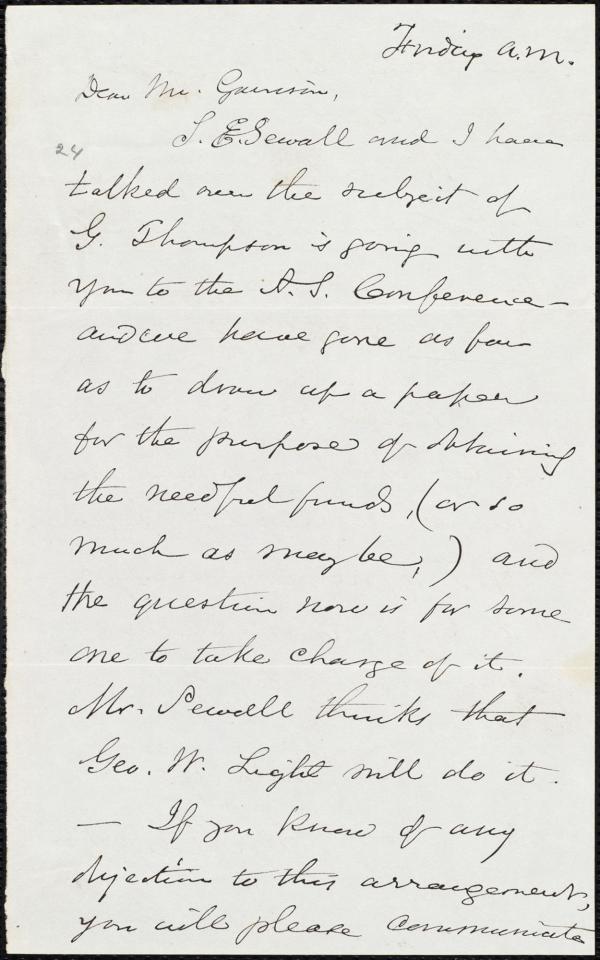 Friday a.m.
Dear Mr. Garrison,
S. E. Sewall and I have
24
talked over the subject of
G. Thompson's going with
you to the A. S. Conference –
and we have gone as far
as to draw up a paper
for the purpose of obtaining
the needful funds, (or so
much as may be,) and
the question now is for some
one to take charge of it.
Mr. Sewall thinks that
Geo. W. Light will do it.
— If you know of any
objection to this arrangement,
you will please communicate